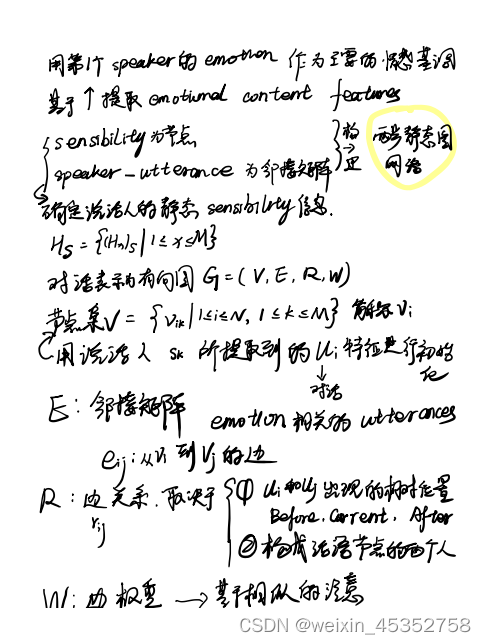 用第1个 speaker的 emotion 作为主要的情感基调
基于↑提取 emotional content features
sensibility 为节点
speaker-utterance 为邻接矩阵
构→正
两步静态图
网络
确定说话人的静态 sensibility 信息.
Hs = {(Hn)s | 1≤x≤M}
对话表示为有向图 G=(V, E, R, W)
节点集V = {vik | 1≤i≤N, 1≤k≤M} vi
用说话人 sk 所提取到的 Ui 特征进行初始
化
↓
对话
E: 邻接矩阵 emotion 相关的 utterances
eij: 从vi 到 vj 的边
R: 边关系. 取决于
rij
① ui 和 uj 出现的相对位置
Before. Current. After
② 构成话语节点的两个人
W: 边权重 → 基于相似的注意
CSDN @weixin_45352758